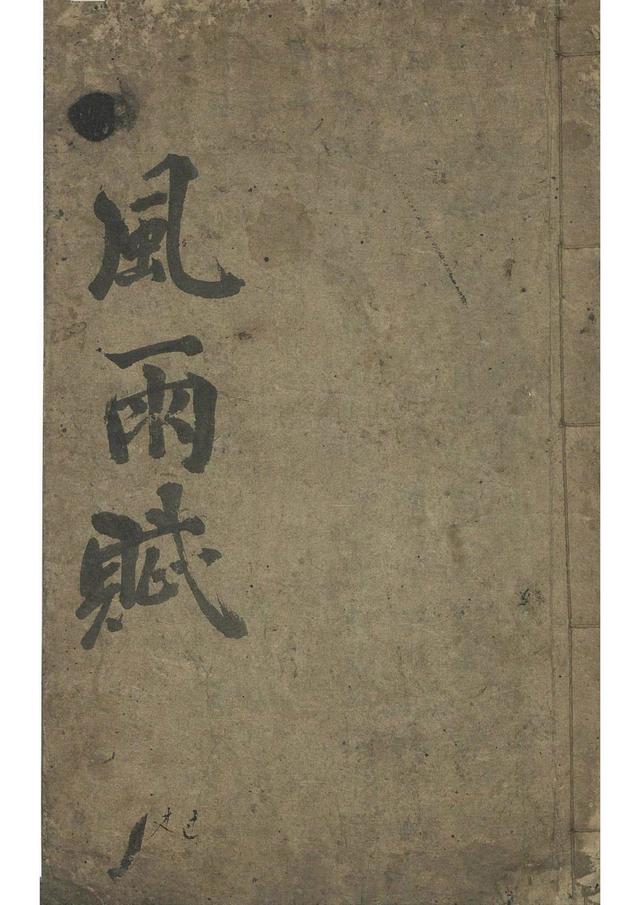 風雨賦